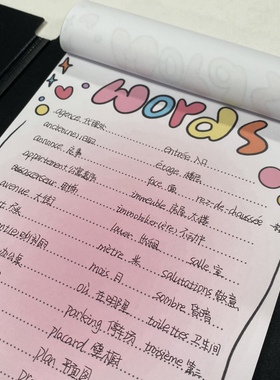 words
agence.代理处
ancien(ne).旧的
annonce.广告
appartement.公寓套房
ascenseur.电梯
avenue.大街
entrée.入口
étage.楼层
face.面
immeuble.房屋.大楼
immobilier(ère).不动产
louer.出租
mètre.米
mois.月
où.在哪里
parking.停车场
placard.壁橱
plan.平面图
rez-de-chaussée
salle.室
salutations.致意
sombre.昏暗
toilettes.卫生间
troisième.第三